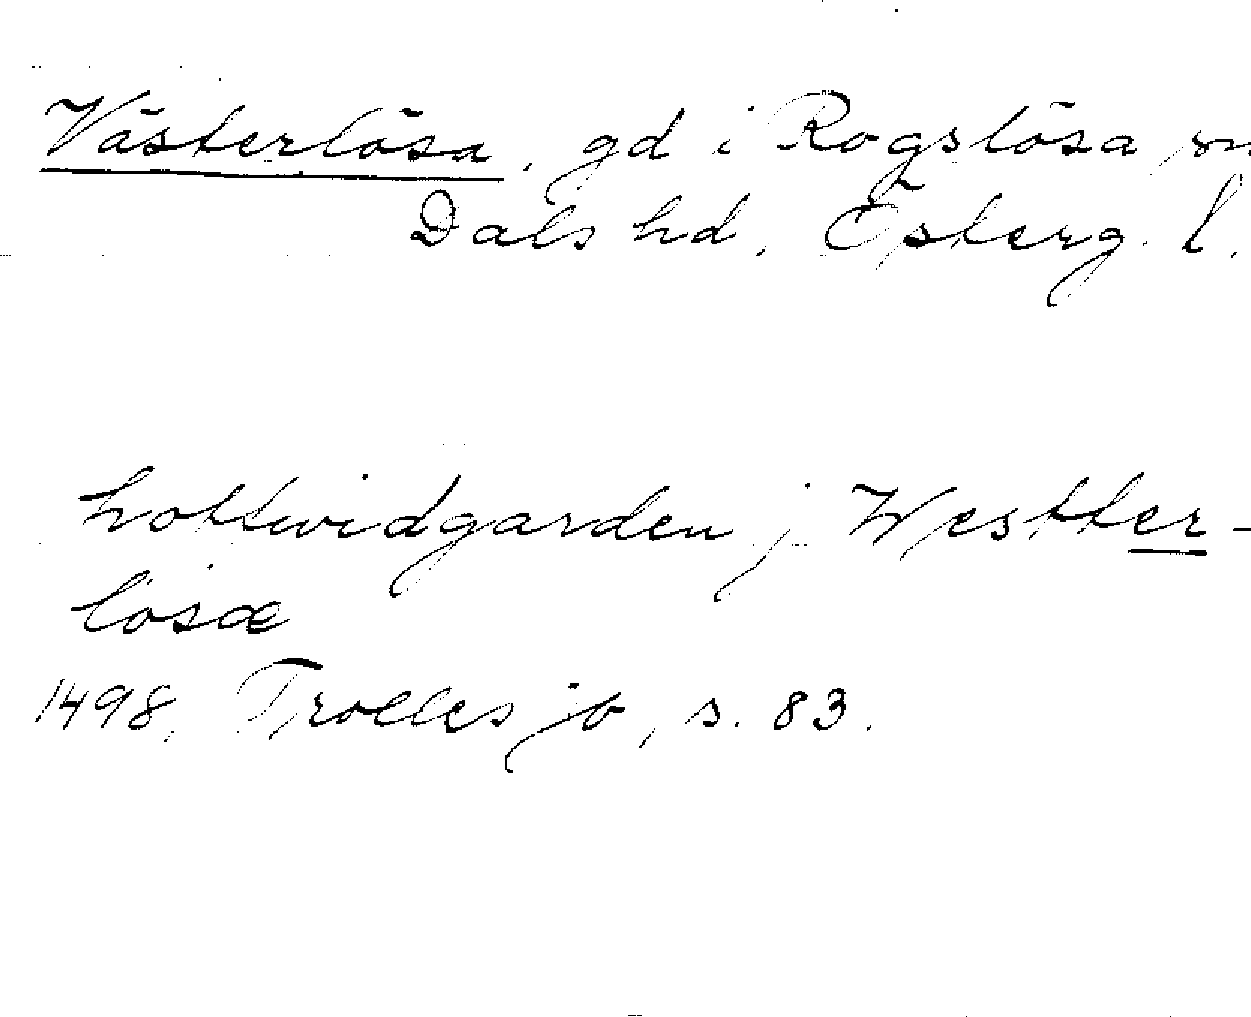 Västerlösa, gd i Rogslösa sn
Dals hd, Österg. l.
hottwidgarden j Westter-
løsæ
1498, Trolles jb, s. 83.